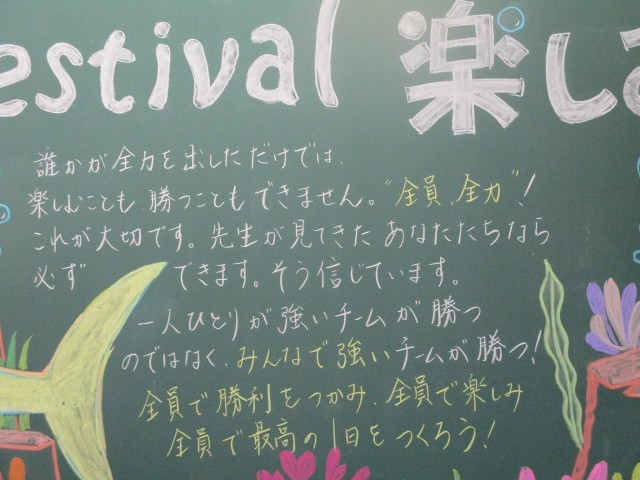 estival 楽し
誰かが全力を出しただけでは、
楽しむことも勝つこともできません。“全員、全力”!
これが大切です。先生が見てきたあなたたちなら
必ず できます。そう信じています。
一人ひとりが強いチームが勝つ
のではなく、みんなで強いチームが勝つ!
全員で勝利をつかみ、全員で楽しみ
全員で最高の1日をつくろう!